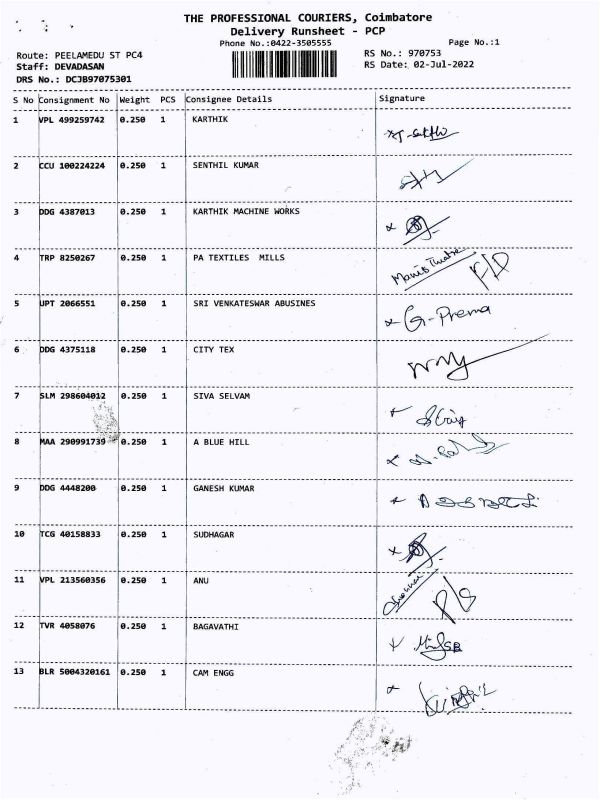 THE PROFESSIONAL COURIERS, Coimbatore
Delivery Runsheet - PCP
Phone No.:0422-3505555 Page No.:1
Route: PEELAMEDU ST PC4 RS No.: 970753
Staff: DEVADASAN RS Date: 02-Jul-2022
DRS No.: DCJB97075301
S No Consignment No Weight PCS Consignee Details Signature
1 VPL 499259742 0.250 1 KARTHIK
2 CCU 100224224 0.250 1 SENTHIL KUMAR
3 DDG 4387013 0.250 1 KARTHIK MACHINE WORKS
4 TRP 8250267 0.250 1 PA TEXTILES MILLS
5 UPT 2066551 0.250 1 SRI VENKATESWAR ABUSINES G-Prema
6 DDG 4375118 0.250 1 CITY TEX
7 SLM 298604012 0.250 1 SIVA SELVAM
8 MAA 290991739 0.250 1 A BLUE HILL
9 DDG 4448200 0.250 1 GANESH KUMAR
10 TCG 40158833 0.250 1 SUDHAGAR
11 VPL 213560356 0.250 1 ANU
12 TVR 4058076 0.250 1 BAGAVATHI
13 BLR 5004320161 0.250 1 CAM ENGG